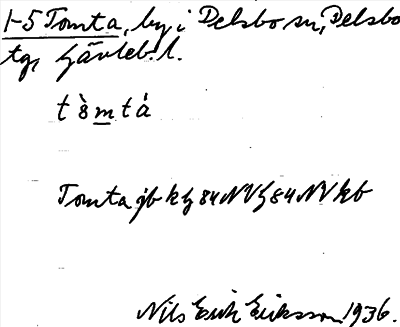 1-5 Tomta, by i Delsbo sn, Delsbo
tg, Gävleb. l.
t ò m t á
Tomta jb kg 84 NV G 84 NV kb
Nils Erik Eriksson 1936.